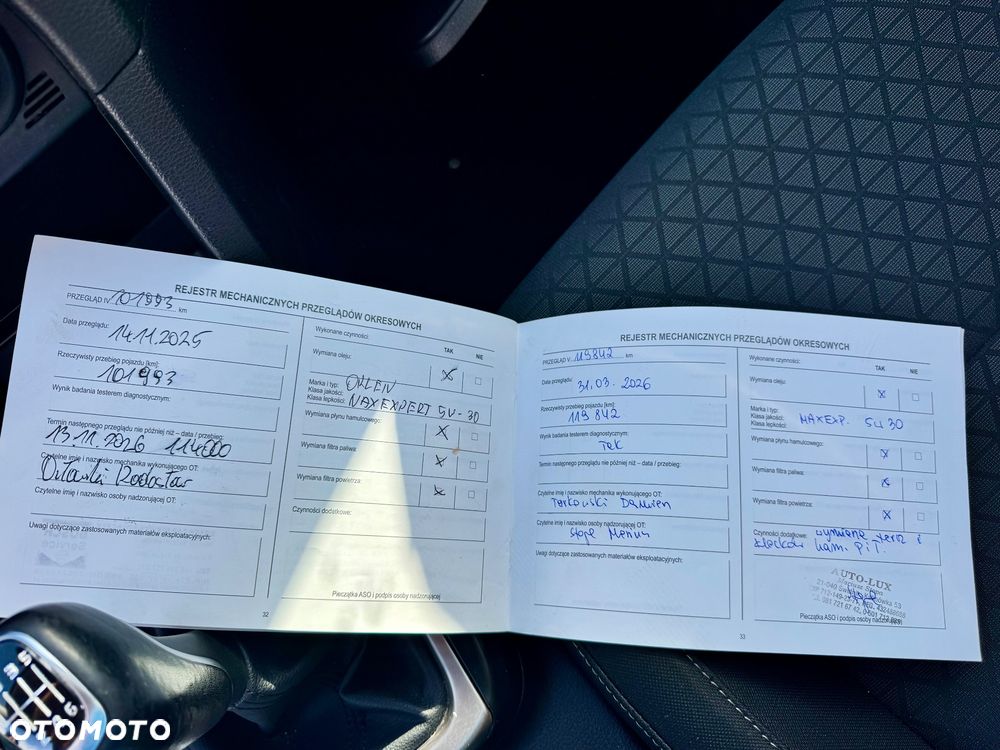 REJESTR MECHANICZNYCH PRZEGLĄDÓW OKRESOWYCH
PRZEGLĄD IV 101993 km
Data przeglądu:
14.11.2025
Rzeczywisty przebieg pojazdu [km]:
101993
Wynik badania testerem diagnostycznym:
Termin następnego przeglądu nie później niż – data / przebieg:
13.11.2026 114000
Czytelne imię i nazwisko mechanika wykonującego OT:
Czytelne imię i nazwisko osoby nadzorującej OT:
Uwagi dotyczące zastosowanych materiałów eksploatacyjnych:
32
Wykonane czynności:
TAK NIE
Wymiana oleju:
X
Marka i typ: ORLEN
Klasa jakości:
Klasa lepkości: MAXEXPERT 5W-30
Wymiana płynu hamulcowego:
X
Wymiana filtra paliwa:
X
Wymiana filtra powietrza:
X
Czynności dodatkowe:
Pieczątka ASO i podpis osoby nadzorującej
REJESTR MECHANICZNYCH PRZEGLĄDÓW OKRESOWYCH
PRZEGLĄD V 119842 km
Data przeglądu:
31.03.2026
Rzeczywisty przebieg pojazdu [km]:
119 842
Wynik badania testerem diagnostycznym:
Tak
Termin następnego przeglądu nie później niż – data / przebieg:
Czytelne imię i nazwisko mechanika wykonującego OT:
Tarkowski Damian
Czytelne imię i nazwisko osoby nadzorującej OT:
Uwagi dotyczące zastosowanych materiałów eksploatacyjnych:
33
Wykonane czynności:
TAK NIE
Wymiana oleju:
X
Marka i typ:
Klasa jakości:
Klasa lepkości: MAXEXP. 5W30
Wymiana płynu hamulcowego:
X
Wymiana filtra paliwa:
X
Wymiana filtra powietrza:
X
Czynności dodatkowe: wymiana tarcz i
klocków ham. P i T.
AUTO-LUX
21-040
Pieczątka ASO i podpis osoby nadzorującej
OTOMOTO